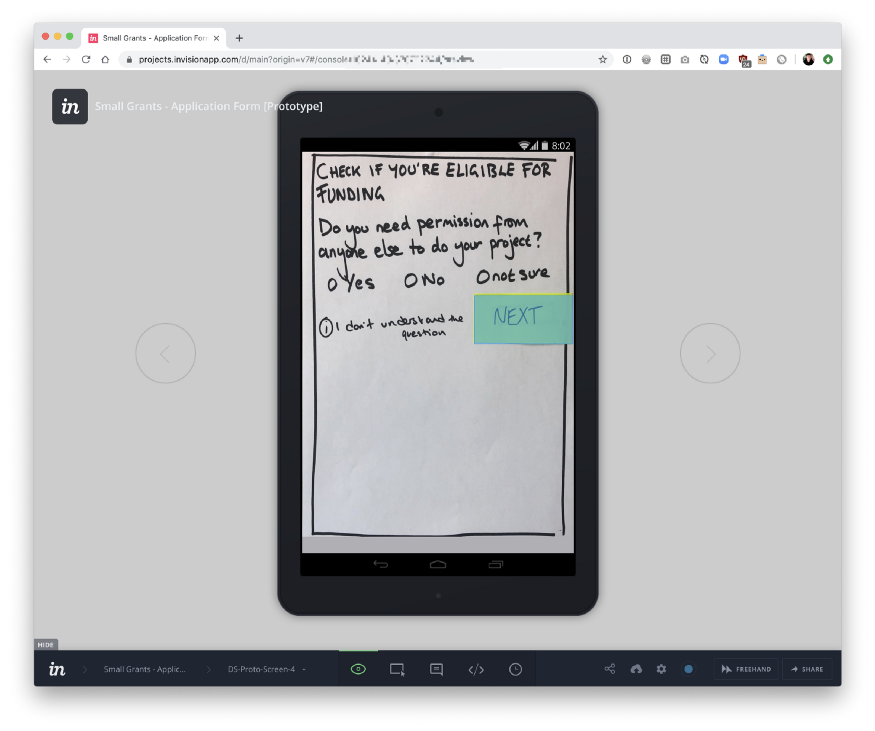 Small Grants - Application For
projects.invisionapp.com/d/main?origin=v7#/console
24
in
Small Grants - Application Form [Prototype]
8:02
CHECK IF YOU'RE ELIGIBLE FOR
FUNDING
Do you need permission from
anyone else to do your project?
Yes No not sure
NEXT
i I don't understand the
question
HIDE
in
Small Grants - Applic...
DS-Proto-Screen-4
FREEHAND
SHARE